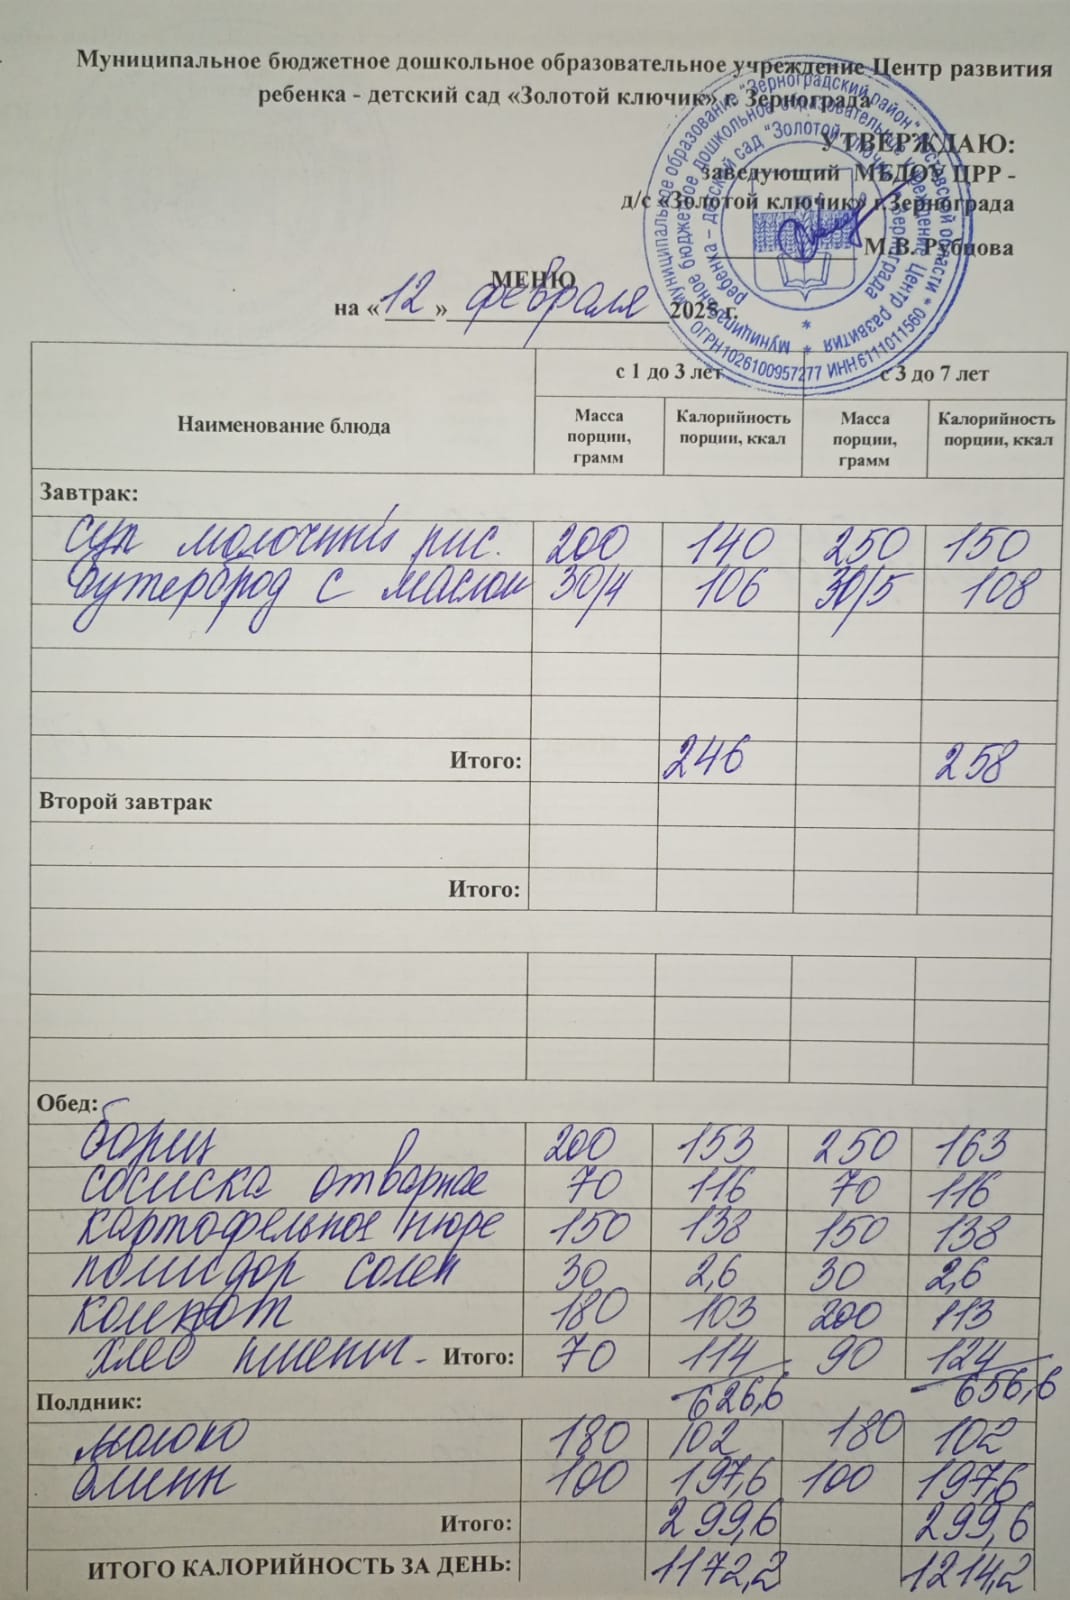 Муниципальное бюджетное дошкольное образовательное учреждение Центр развития
ребенка - детский сад «Золотой ключик» г. Зернограда
УТВЕРЖДАЮ:
заведующий МБДОУ ЦРР -
д/с «Золотой ключик» г.Зернограда
М.В. Рубцова
Муниципальное образование "Зерноградский район" Ростовской области * ОГРН 1026100957277 ИНН 6111011560 *
муниципальное бюджетное дошкольное образовательное учреждение Центр развития
ребенка – детский сад "Золотой ключик" г. Зернограда
МЕНЮ
на « 12 » февраля 2025 г.
Наименование блюда с 1 до 3 лет с 3 до 7 лет
Масса порции, грамм Калорийность порции, ккал Масса порции, грамм Калорийность порции, ккал
Завтрак:
суп молочный рис. 200 140 250 150
бутерброд с маслом 30/4 106 30/5 108
Итого: 246 258
Второй завтрак
Итого:
Обед:
борщ 200 153 250 163
сосиска отварная 70 116 70 116
картофельное пюре 150 138 150 138
помидор солен 30 2,6 30 2,6
компот 180 103 200 113
хлеб пшенич. Итого: 70 114 90 124
626,6 656,6
Полдник:
молоко 180 102 180 102
блины 100 197,6 100 197,6
Итого: 299,6 299,6
ИТОГО КАЛОРИЙНОСТЬ ЗА ДЕНЬ: 1172,2 1214,2